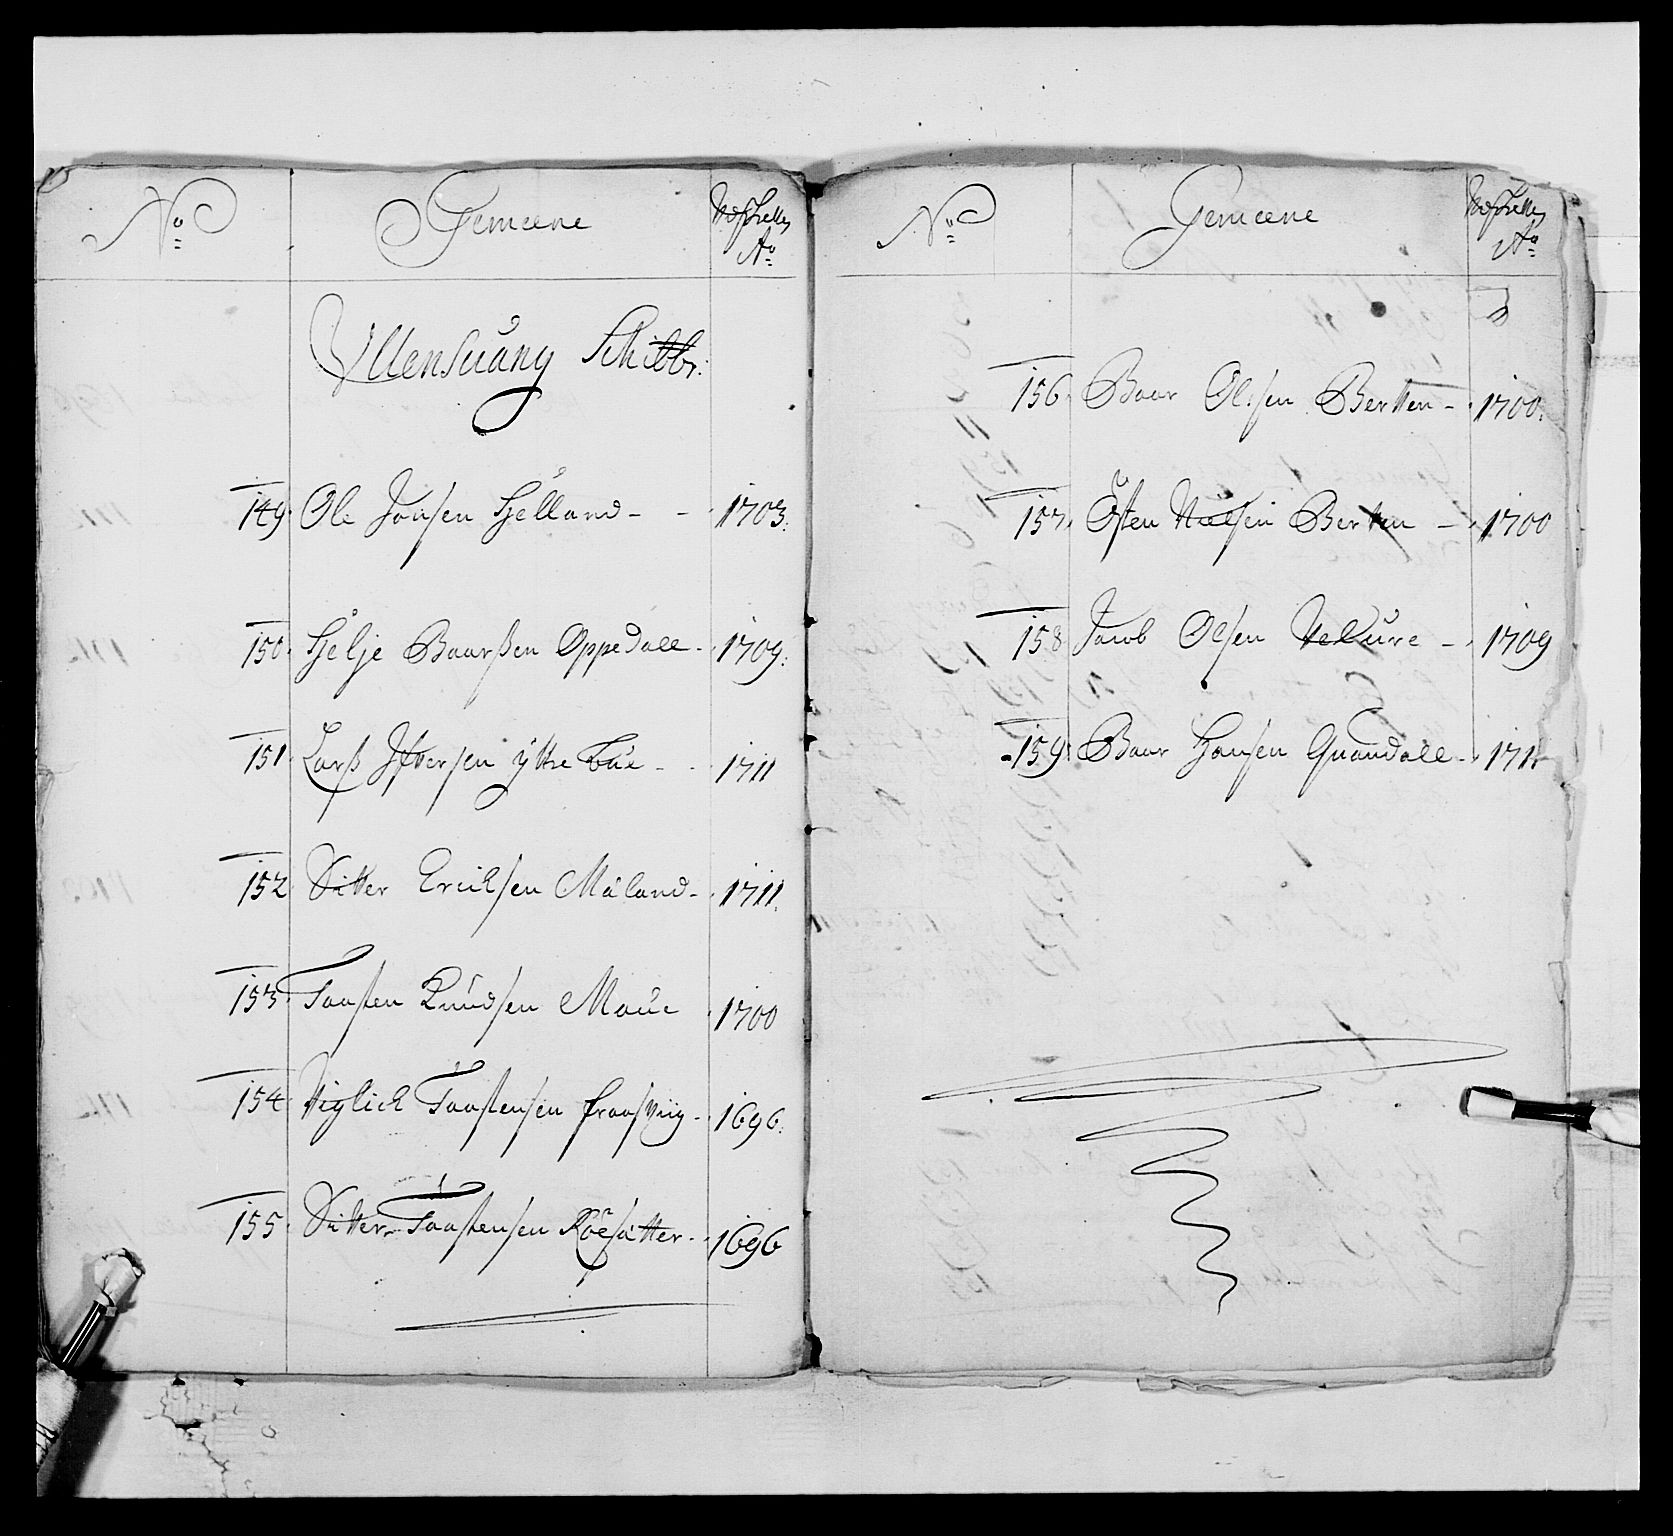 No Gemeene Ao
Ullensuang Schibbr:
149. Ole Jonsen Hielland - - 1703.
150. Helje Baarssen Oppedall - 1709.
151 Larss Iffversen ÿttre Büe - - 1711
152 Vitter Ericksen Måland - 1711.
153. Taasten Knudsen Maüe 1700
154. Viglick Taastensen fraasviig - 1696.
155. Vitter Taastensen Röesätter - 1696
No Gemeene Ao
156. Baar Olsen Berven - 1700.
157. Østen Nielsen Berven - 1700
158 Jacob Olsen Vekure - 1709
159. Baar Hansen Quandall - 1711